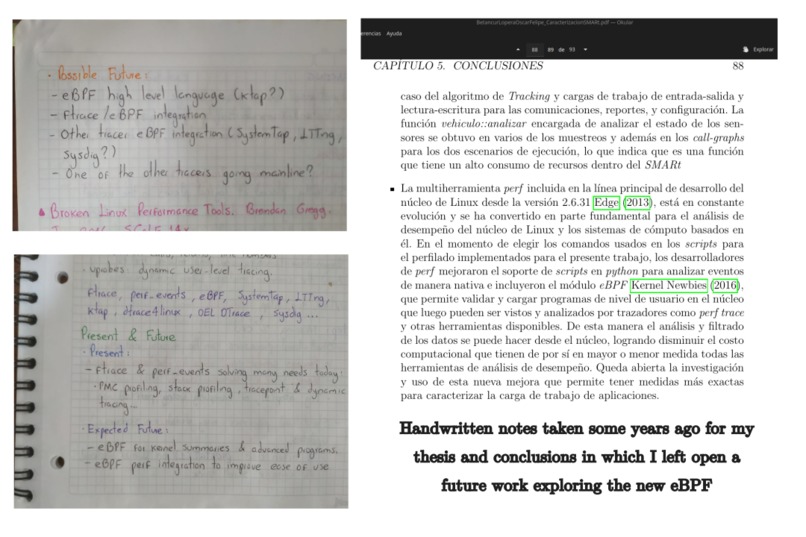 · Possible Future:
- eBPF high level language (ktap?)
- Ftrace/eBPF integration
- Other tracer eBPF integration (SystemTap, LTTng,
Sysdig?)
- One of the other tracers going mainline?
Broken Linux Performance Tools. Brendan Gregg.
SCALE 14x
· uprobes dynamic user-level tracing.
Ftrace, perf_events, eBPF, SystemTap, LTTng,
ktap, dtrace4linux, OEL DTrace, Sysdig ...
Present & Future
· Present:
- Ftrace & perf_events solving many needs today:
· PMC profiling, stack profiling, tracepoint & dynamic
tracing...
· Expected Future:
- eBPF for kernel summaries & advanced programs.
- eBPF perf integration to improve ease of use
BetancurLoperaOscarFelipe_CaracterizacionSMARt.pdf — Okular
erencias Ayuda
88 89 de 93
Explorar
CAPÍTULO 5. CONCLUSIONES 88
caso del algoritmo de Tracking y cargas de trabajo de entrada-salida y
lectura-escritura para las comunicaciones, reportes, y configuración. La
función vehiculo::analizar encargada de analizar el estado de los sen-
sores se obtuvo en varios de los muestreos y además en los call-graphs
para los dos escenarios de ejecución, lo que indica que es una función
que tiene un alto consumo de recursos dentro del SMARt
▪ La multiherramienta perf incluida en la línea principal de desarrollo del
núcleo de Linux desde la versión 2.6.31 Edge (2013), está en constante
evolución y se ha convertido en parte fundamental para el análisis de
desempeño del núcleo de Linux y los sistemas de cómputo basados en
él. En el momento de elegir los comandos usados en los scripts para
el perfilado implementados para el presente trabajo, los desarrolladores
de perf mejoraron el soporte de scripts en python para analizar eventos
de manera nativa e incluyeron el módulo eBPF Kernel Newbies (2016),
que permite validar y cargar programas de nivel de usuario en el núcleo
que luego pueden ser vistos y analizados por trazadores como perf trace
y otras herramientas disponibles. De esta manera el análisis y filtrado
de los datos se puede hacer desde el núcleo, logrando disminuir el costo
computacional que tienen de por sí en mayor o menor medida todas las
herramientas de análisis de desempeño. Queda abierta la investigación
y uso de esta nueva mejora que permite tener medidas más exactas
para caracterizar la carga de trabajo de aplicaciones.
Handwritten notes taken some years ago for my
thesis and conclusions in which I left open a
future work exploring the new eBPF